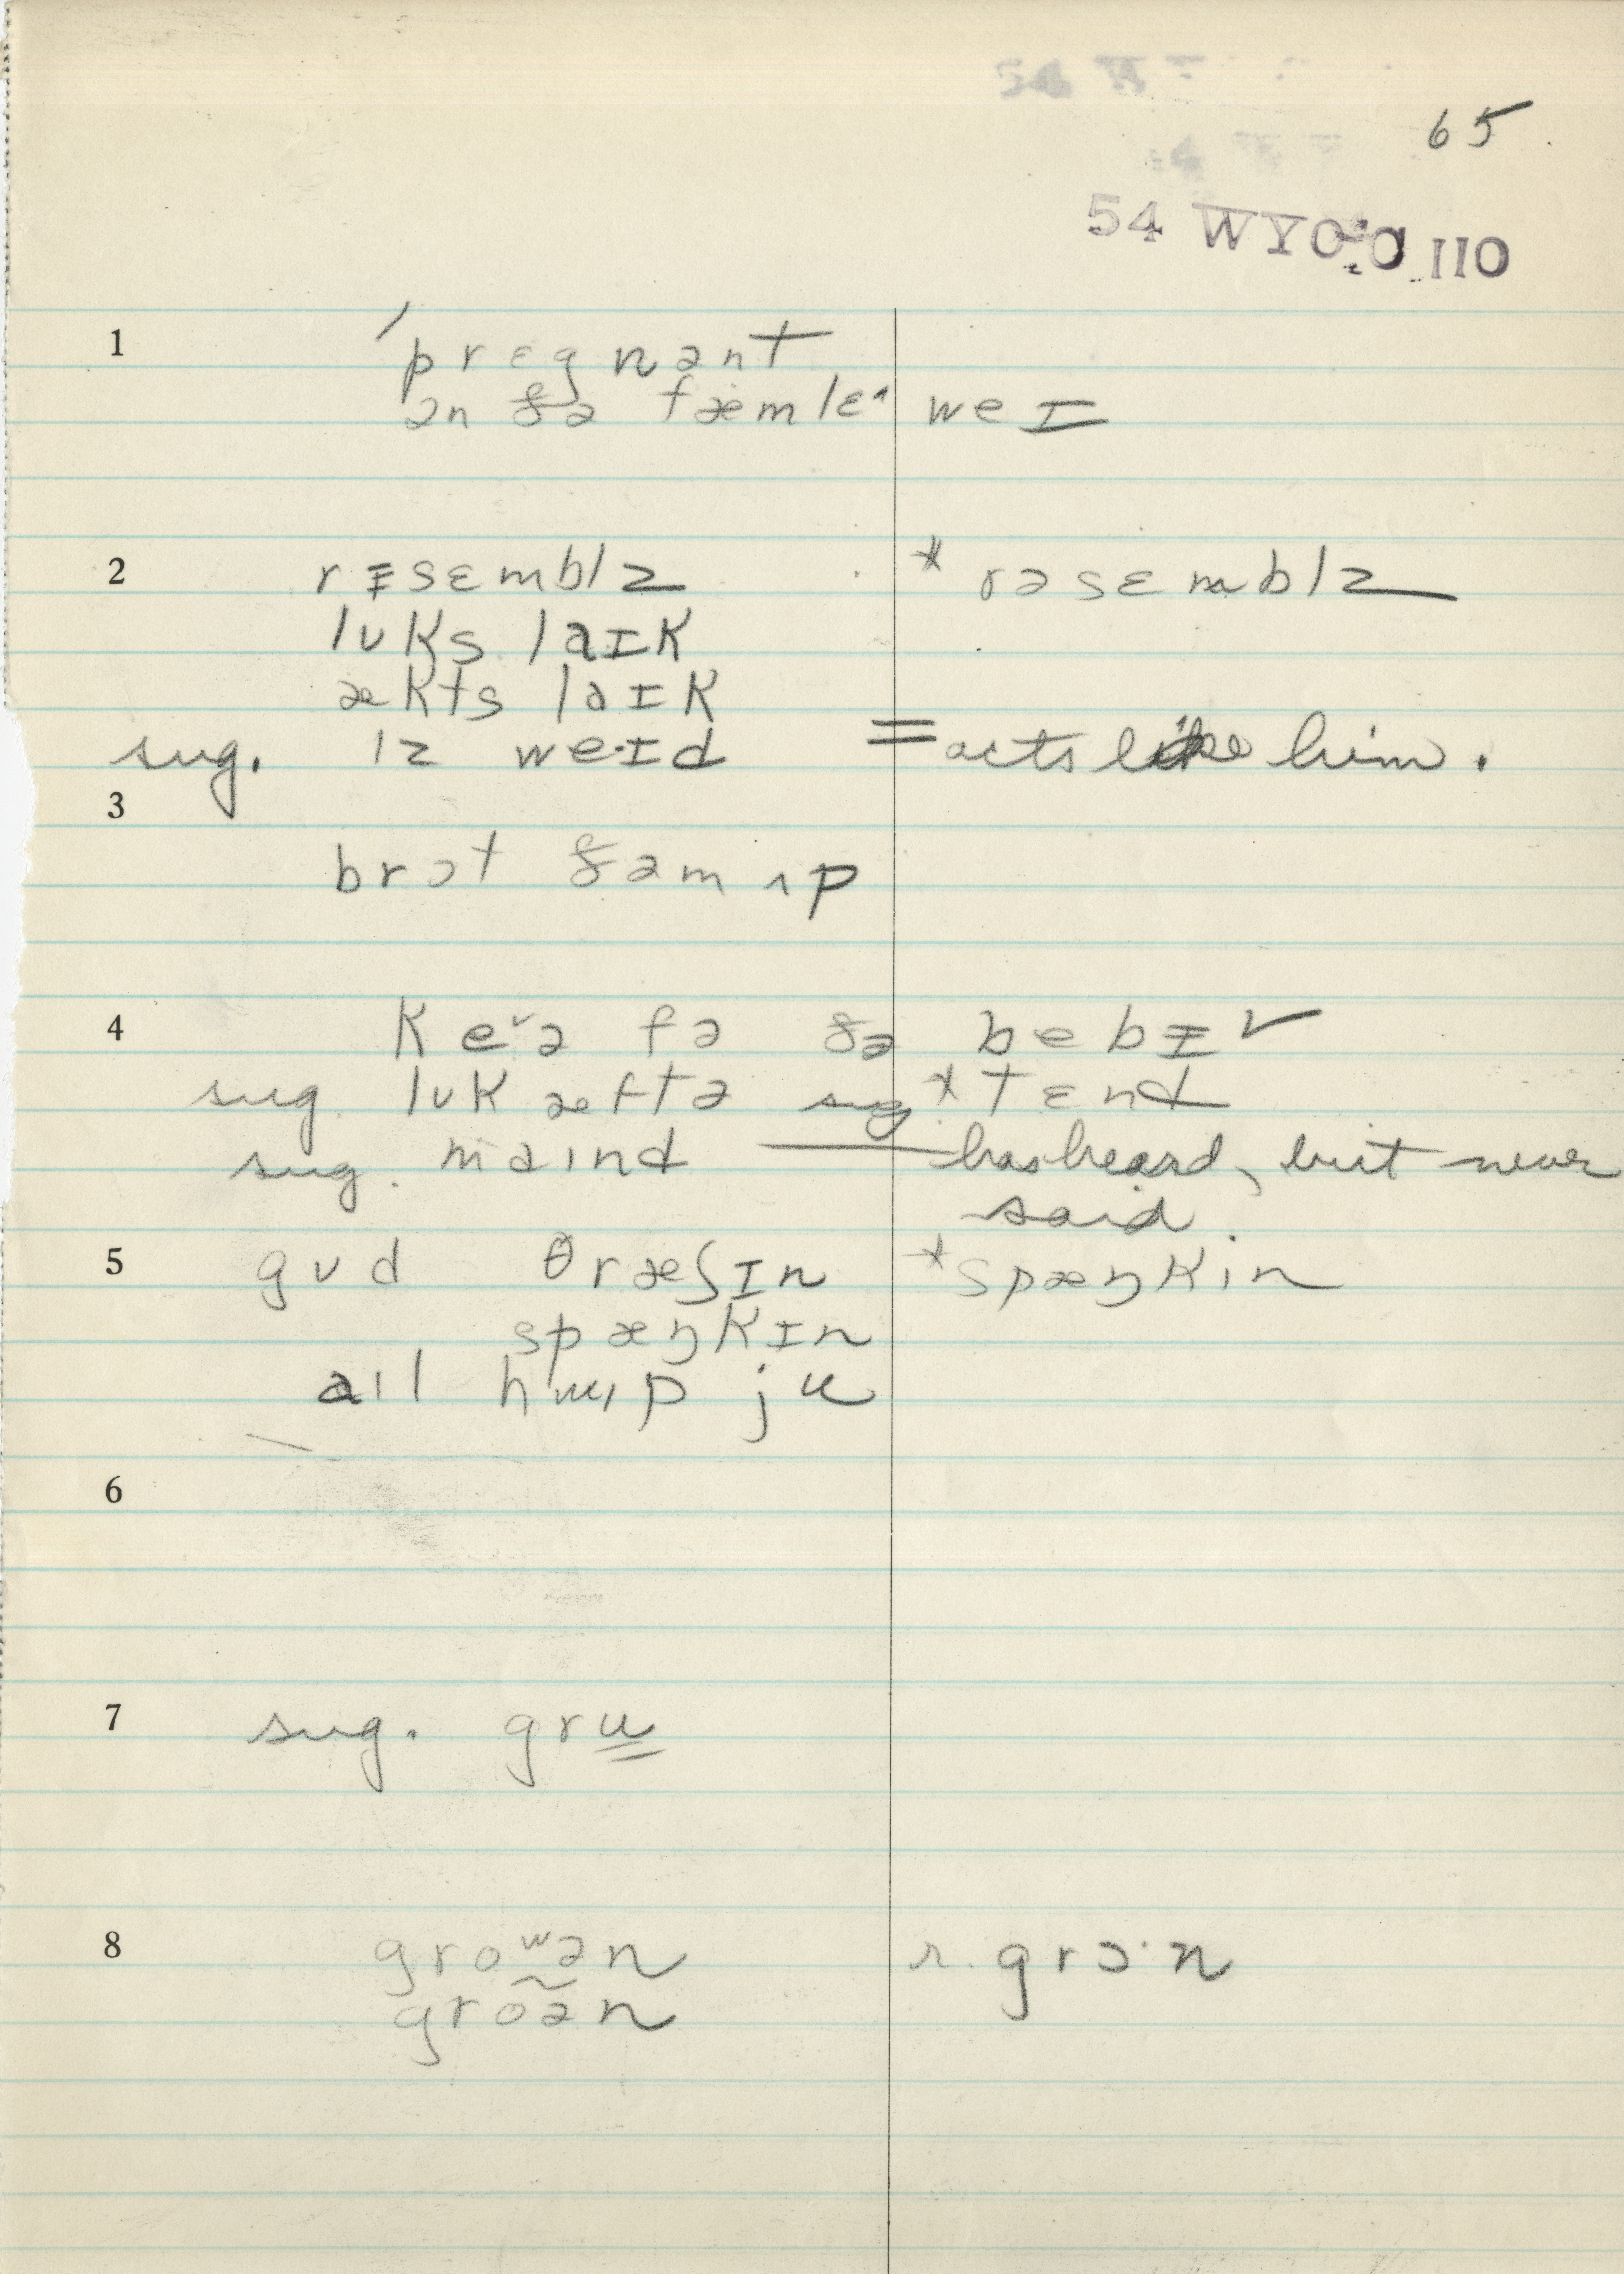 65.
54 WYO.O 110
1 ˈprɛgnənt
ən ðə fæmlɛ^ weɪ
2 rɪsɛmblz * rəsɛmblz
lʊks laɪk
ækts laɪk
sug. ɪz we·ɪd = acts like him.
3
brɔt ðəm ʌp
4 keˇə fə ðə bebɪˇ
sug. lʊk æftə sug. * tɛnd
sug. maɪnd — has heard, but never
said.
5 gʊd θræʃɪn * spæŋkin
spæŋkɪn
aɪl ju
6
7 sug. gru
8 groʷən r. grɔ·n
groən